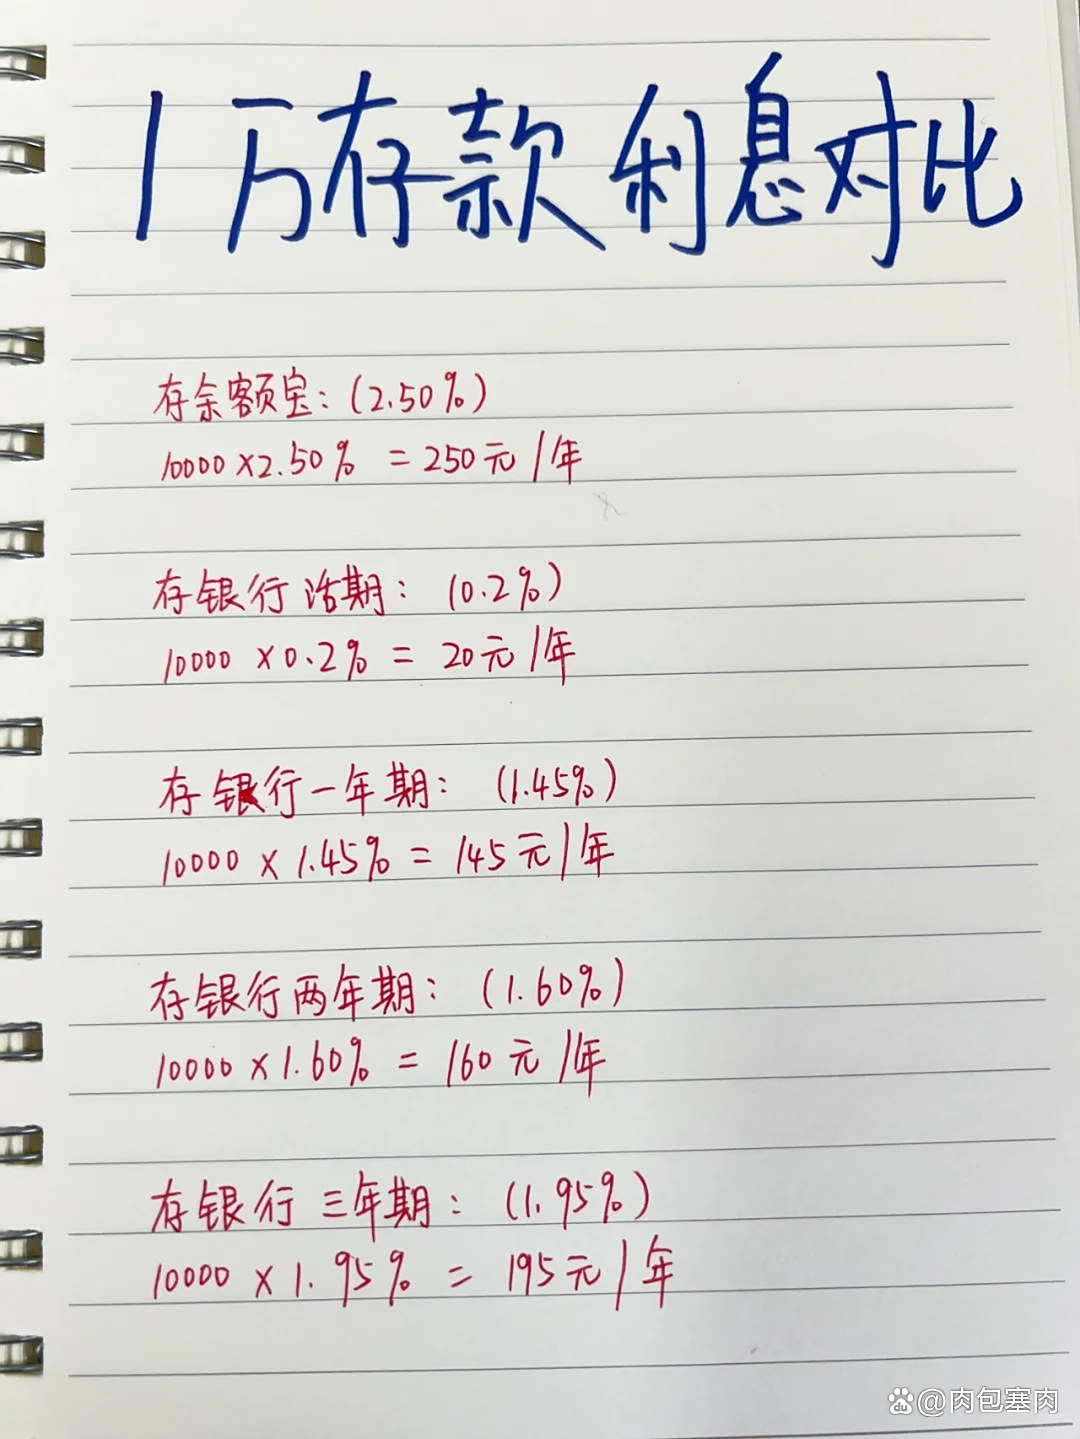 1万存款利息对比
存余额宝：(2.50%)
10000×2.50% = 250元/年
存银行活期： (0.2%)
10000×0.2% = 20元/年
存银行一年期： (1.45%)
10000×1.45% = 145元/年
存银行两年期： (1.60%)
10000×1.60% = 160元/年
存银行三年期： (1.95%)
10000×1.95% = 195元/年
@肉包塞肉